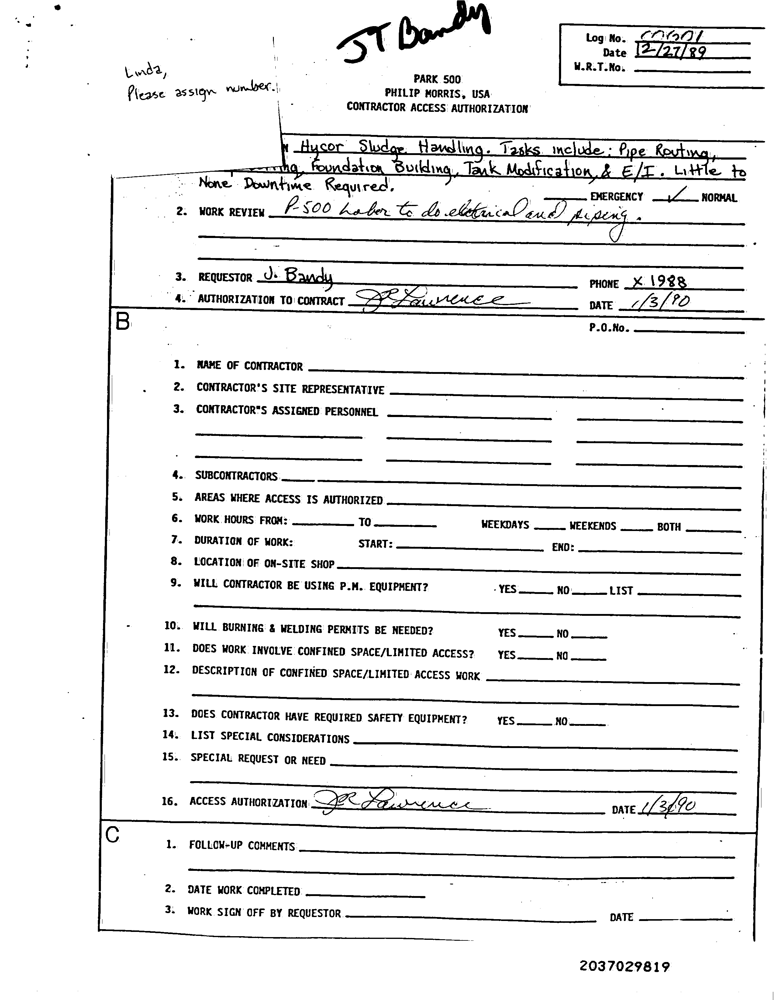 JT Bandy
Log No.
Date 12/27/89
W.R.T.No.
Linda,
Please assign number.
PARK 500
PHILIP MORRIS, USA
CONTRACTOR ACCESS AUTHORIZATION
Hycor Sludge Handling. Tasks include: Pipe Routing,
Foundation Building, Tank Modification, & E/I. Little to
None Downtime Required.
EMERGENCY ✓ NORMAL
2. WORK REVIEW P-500 Labor to do electrical and piping.
3. REQUESTOR J. Bandy PHONE X 1988
4. AUTHORIZATION TO CONTRACT JR Lawrence DATE 1/3/90
B
P.O.No.
1. NAME OF CONTRACTOR
2. CONTRACTOR'S SITE REPRESENTATIVE
3. CONTRACTOR"S ASSIGNED PERSONNEL
4. SUBCONTRACTORS
5. AREAS WHERE ACCESS IS AUTHORIZED
6. WORK HOURS FROM: TO WEEKDAYS WEEKENDS BOTH
7. DURATION OF WORK: START: END:
8. LOCATION OF ON-SITE SHOP
9. WILL CONTRACTOR BE USING P.M. EQUIPMENT? YES NO LIST
10. WILL BURNING & WELDING PERMITS BE NEEDED? YES NO
11. DOES WORK INVOLVE CONFINED SPACE/LIMITED ACCESS? YES NO
12. DESCRIPTION OF CONFINED SPACE/LIMITED ACCESS WORK
13. DOES CONTRACTOR HAVE REQUIRED SAFETY EQUIPMENT? YES NO
14. LIST SPECIAL CONSIDERATIONS
15. SPECIAL REQUEST OR NEED
16. ACCESS AUTHORIZATION JR Lawrence DATE 1/3/90
C
1. FOLLOW-UP COMMENTS
2. DATE WORK COMPLETED
3. WORK SIGN OFF BY REQUESTOR DATE
2037029819